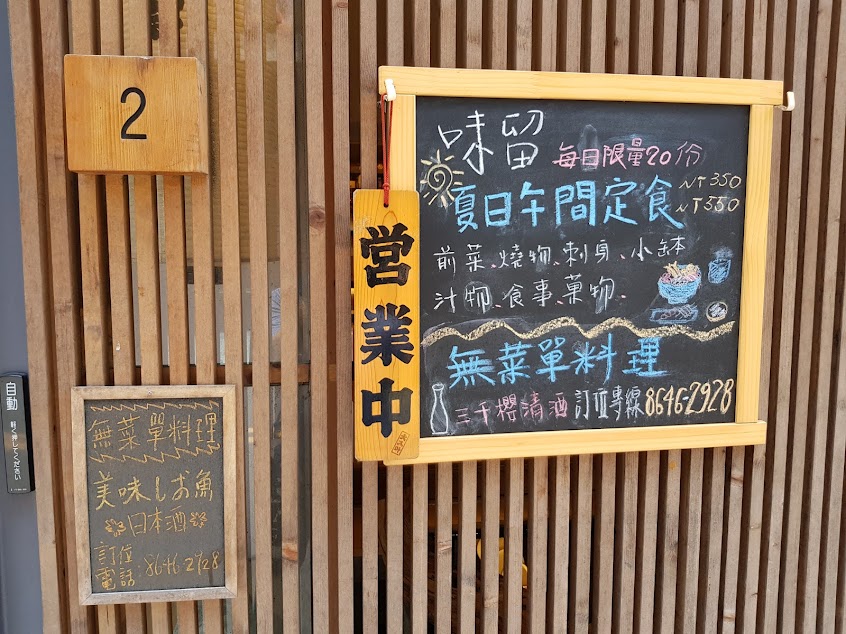 2
味留 每日限量20份
夏日午間定食 NT350
NT550
前菜、燒物、刺身、小缽
汁物、食事、菓物、
無菜單料理
三千櫻清酒 訂位專線 8646-2928
営業中
無菜單料理
美味しお魚
日本酒
訂位
電話:8646-2928
自動
軽く押してください